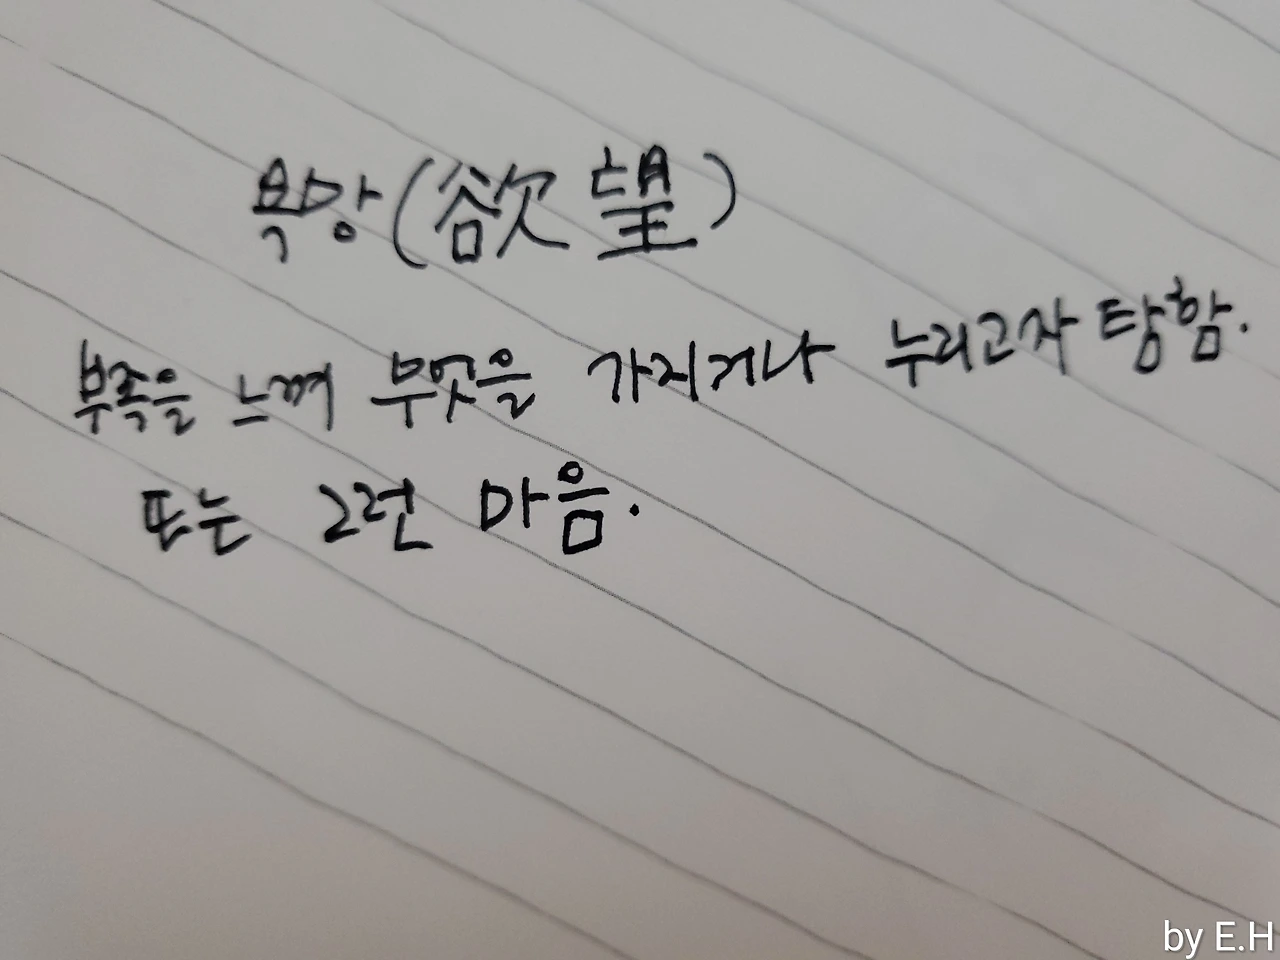 욕망(欲望)
부족을 느껴 무엇을 가지거나 누리고자 탐함.
또는 그런 마음.
by E.H